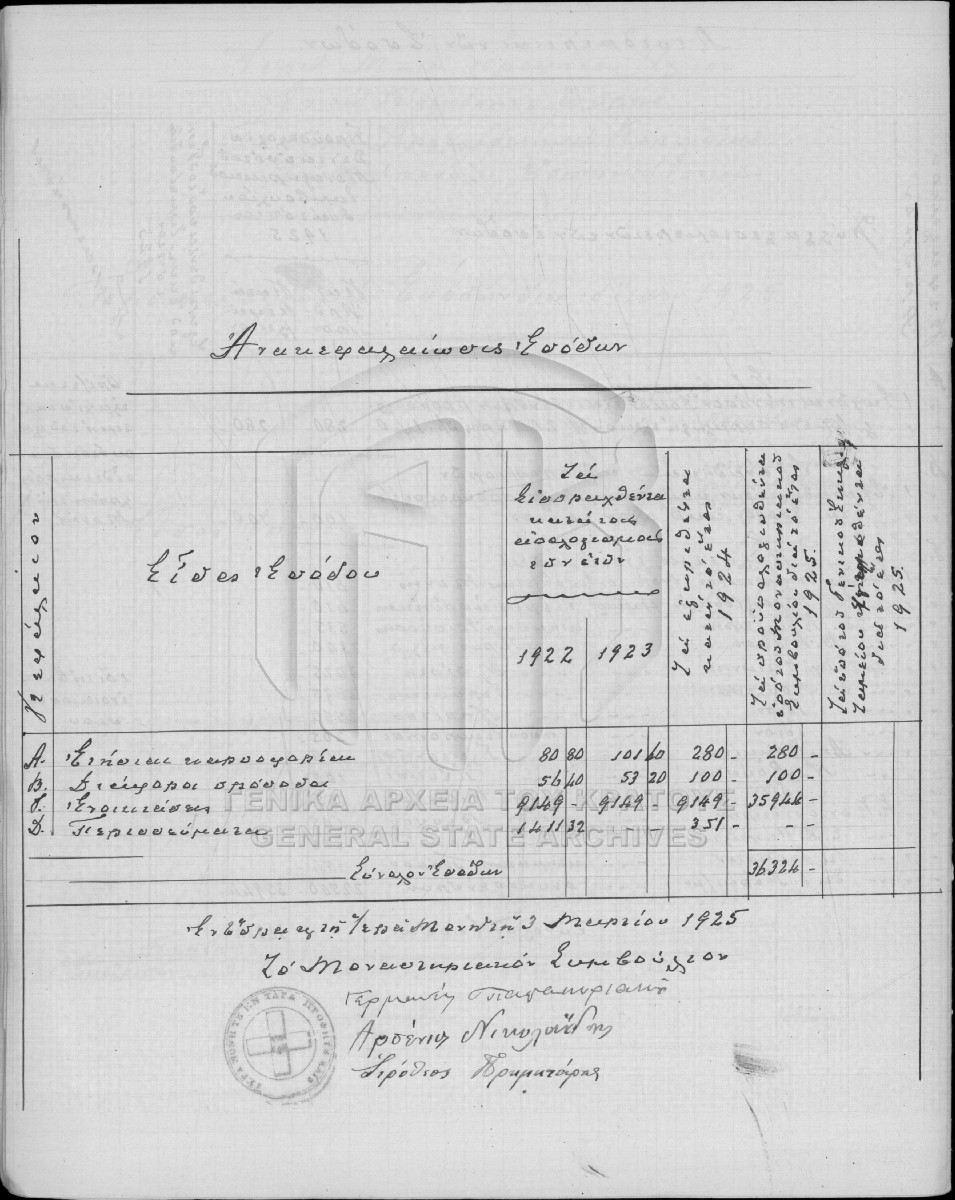 Ἀνακεφαλαίωσις Ἐσόδων
Κεφάλαιον
Εἶδος Ἐσόδου
Τὰ
εἰσπραχθέντα
κατὰ τοὺς
ἀπολογισμοὺς
τῶν ἐτῶν
1922 1923
Τὰ ἐγκριθέντα
κατὰ τὸ ἔτος
1924
Τὰ προϋπολογισθέντα
ὑπὸ τοῦ Μοναστηριακοῦ
Συμβουλίου διὰ τὸ ἔτος
1925.
Τὰ ὑπὸ τοῦ Γενικοῦ Ἐκκλ/κοῦ
Ταμείου
διὰ τὸ ἔτος
1925.
Α. Ἐτήσιαι καρποφορίαι 80 80 101 60 280 - 280 -
Β. Διάφοροι πρόσοδοι 56 40 53 20 100 - 100 -
Γ. Ἐνοικιάσεις 9149 - 9149 - 9149 - 35944 -
Δ. Περισσεύματα 1411 32 - 351 - - -
ΓΕΝΙΚΑ ΑΡΧΕΙΑ ΤΟΥ ΚΡΑΤΟΥΣ
GENERAL STATE ARCHIVES
Σύνολον Ἐσόδων 36324 -
Ἱερᾷ Μονῇ τῇ 3 Μαρτίου 1925
Τὸ Μοναστηριακὸν Συμβούλιον
Γερμανός Παπακυριακοῦ
Ἀρσένιος Νικολαΐδης
ΙΕΡΑ ΜΟΝΗ ΤΟΥ ΕΝ ΥΔΡΑ ΠΡΟΦΗΤΟΥ ΗΛΙΟΥ